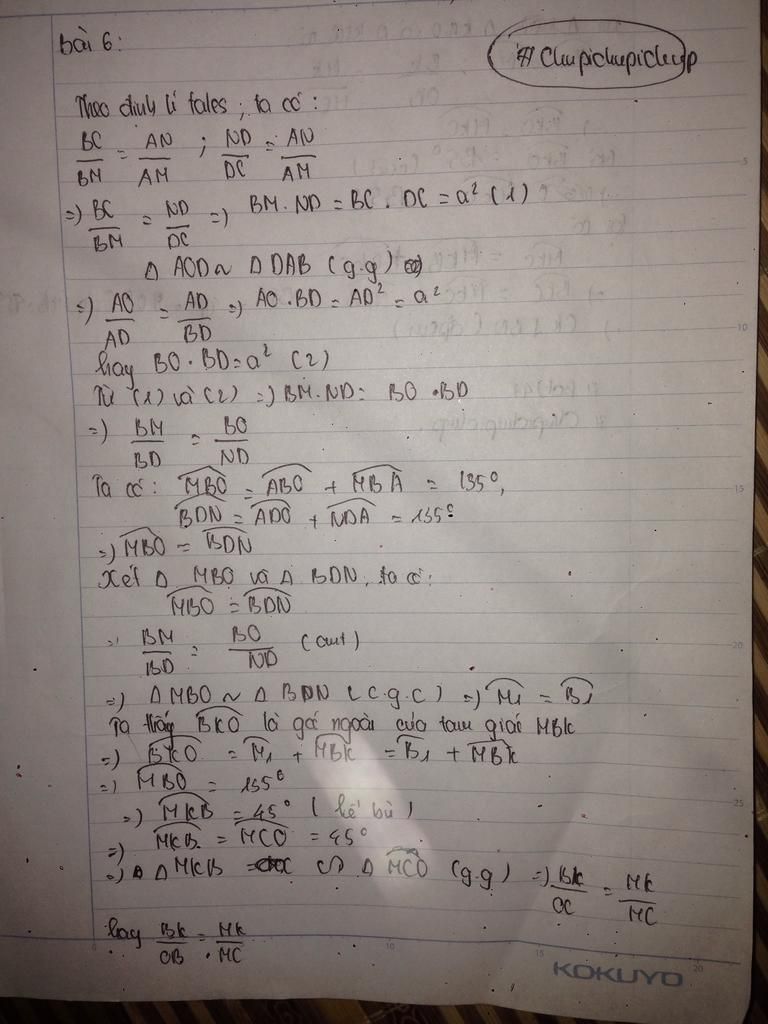 bài 6:
# Chupichupichup
Theo định lí tales, ta có:
BC/BM = AN/AM ; ND/DC = AN/AM
=) BC/BM = ND/DC =) BM.ND = BC.DC = a² (1)
Δ AOD ~ Δ DAB (g.g)
=) AO/AD = AD/BD =) AO.BD = AD² = a²
hay BO.BD = a² (2)
Từ (1) và (2) =) BM.ND = BO.BD
=) BM/BD = BO/ND
Ta có: MBO = ABO + MBA = 135°,
BDN = ADO + NDA = 135°
=) MBO = BDN
Xét Δ MBO và Δ BDN, ta có:
MBO = BDN
BM/BD = BO/ND (cmt)
=) Δ MBO ~ Δ BDN (c.g.c) =) M₁ = B₁
Ta thấy BKO là góc ngoài của tam giác MBK
=) BKO = M₁ + MBK = B₁ + MBK
=) MBO = 135°
=) MKB = 45° (kề bù)
=) MKB = MCO = 45°
=) Δ MKB ∽ Δ MCO (g.g) =) BK/OC = MK/MC
hay BK/OB = MK/MC
KOKUYO